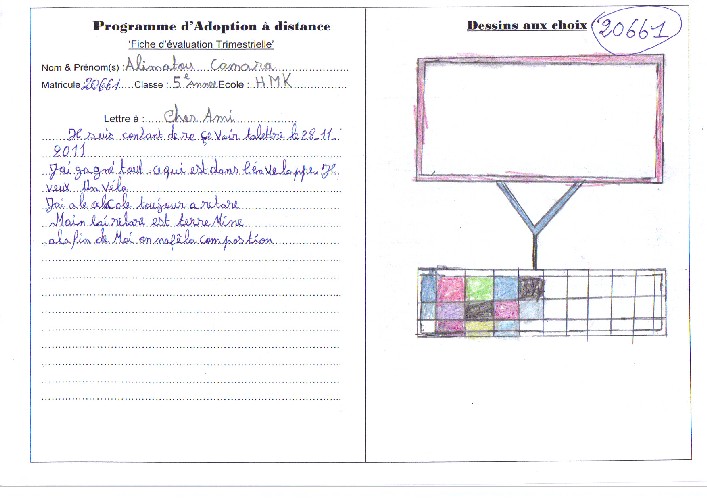 Programme d'Adoption à distance
'Fiche d'évaluation Trimestrielle'
Nom & Prénom(s) :Alimatou Camara
Matricule 20661 Classe : 5e Année Ecole : HMK
Lettre à : Cher Ami
Je suis contant de re çe voir talettre le 28-11
2011
J'ai gagné tout ce qui est dans l'énvelappe. Je
veux Un vélo
J'ai al alécole toujour a retare
Main lai retare est terre Mine
ala fin de Moi on a la composition
Dessins aux choix
20661